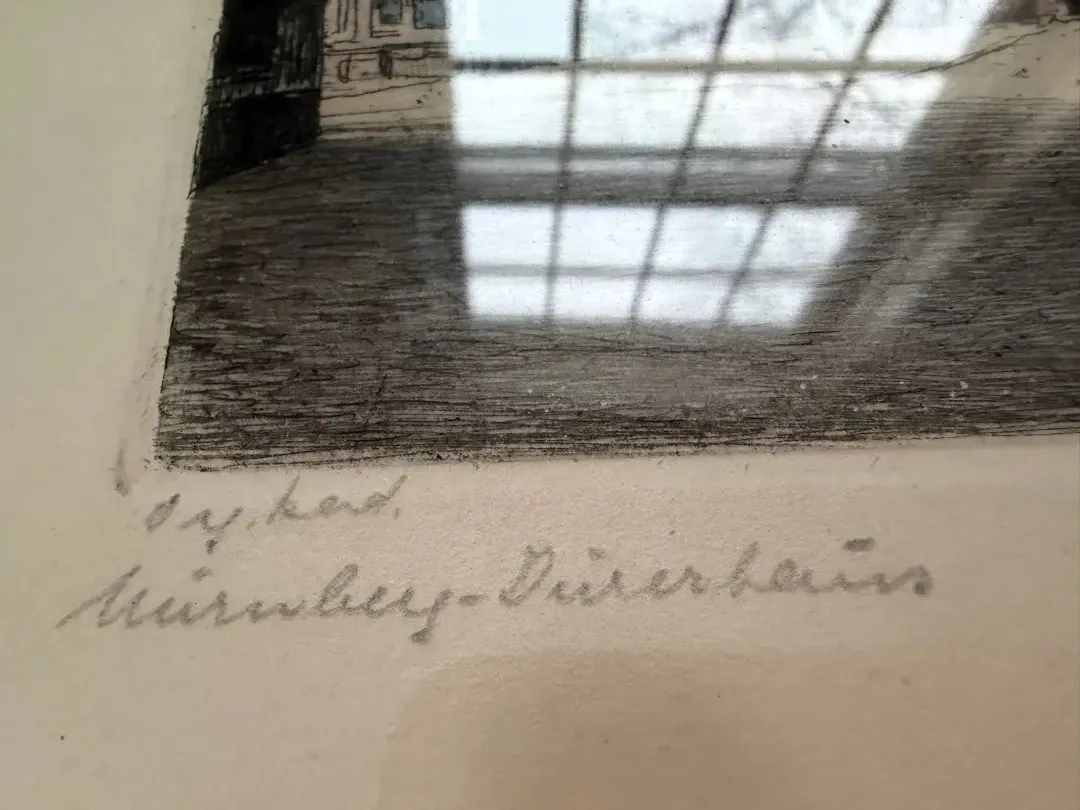 Orig. Rad.
Nürnberg-Dürerhaus